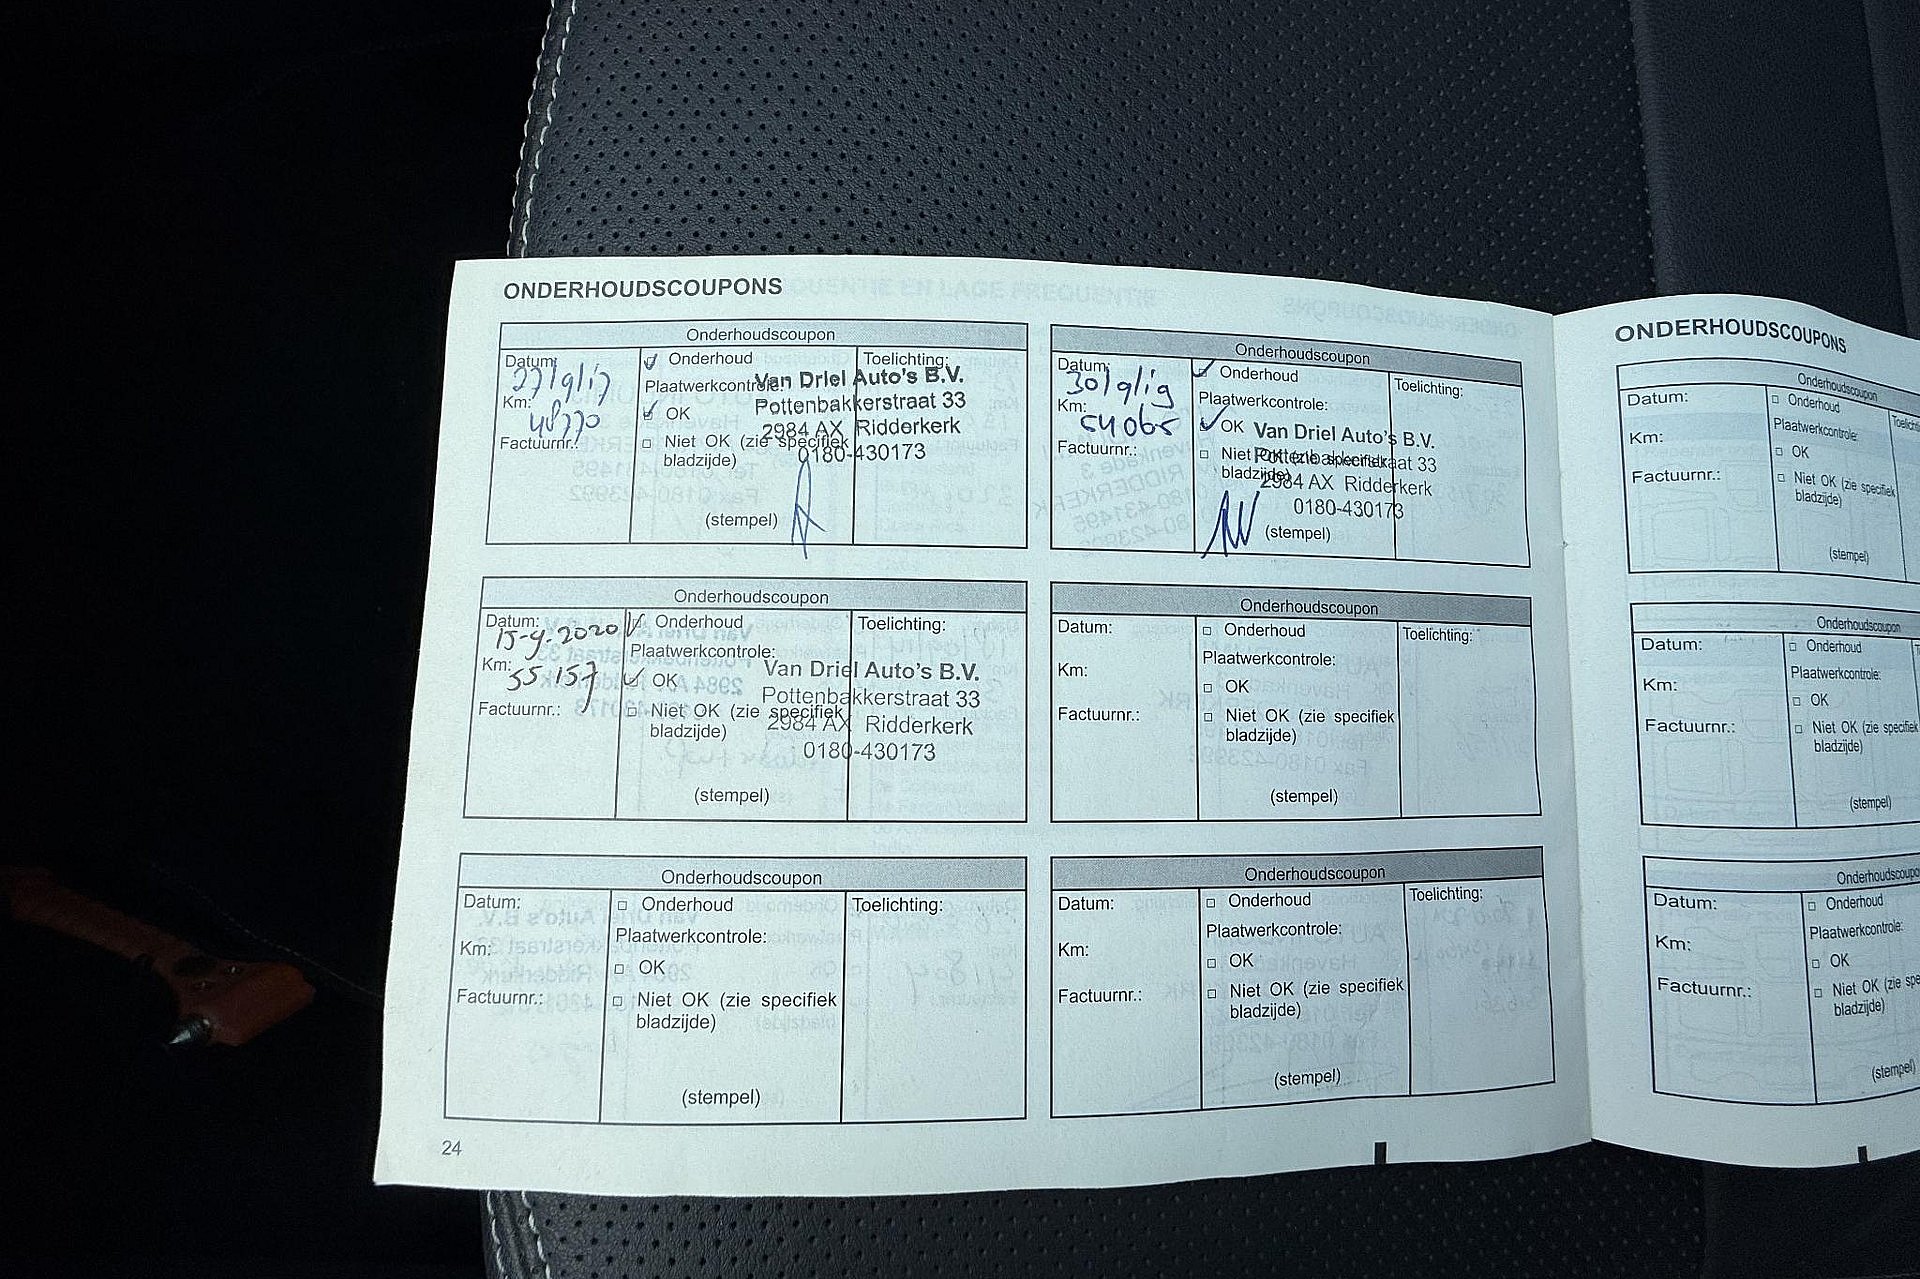 ONDERHOUDSCOUPONS
Onderhoudscoupon
Datum: 27/9/17
Km: 48770
Factuurnr.:
Onderhoud
Plaatwerkcontrole:
OK
Niet OK (zie specifiek
bladzijde)
(stempel)
Toelichting:
Van Driel Auto's B.V.
Pottenbakkerstraat 33
2984 AX Ridderkerk
0180-430173
Onderhoudscoupon
Datum: 30/9/19
Km: 54065
Factuurnr.:
Onderhoud
Plaatwerkcontrole:
OK
Niet OK (zie specifiek
bladzijde)
(stempel)
Toelichting:
Van Driel Auto's B.V.
Pottenbakkerstraat 33
2984 AX Ridderkerk
0180-430173
Onderhoudscoupon
Datum: 15-9-2020
Km: 55157
Factuurnr.:
Onderhoud
Plaatwerkcontrole:
OK
Niet OK (zie specifiek
bladzijde)
(stempel)
Toelichting:
Van Driel Auto's B.V.
Pottenbakkerstraat 33
2984 AX Ridderkerk
0180-430173
Onderhoudscoupon
Datum:
Km:
Factuurnr.:
Onderhoud
Plaatwerkcontrole:
OK
Niet OK (zie specifiek
bladzijde)
(stempel)
Toelichting:
Onderhoudscoupon
Datum:
Km:
Factuurnr.:
Onderhoud
Plaatwerkcontrole:
OK
Niet OK (zie specifiek
bladzijde)
(stempel)
Toelichting:
Onderhoudscoupon
Datum:
Km:
Factuurnr.:
Onderhoud
Plaatwerkcontrole:
OK
Niet OK (zie specifiek
bladzijde)
(stempel)
Toelichting:
24
ONDERHOUDSCOUPONS
Onderhoudscoupon
Datum:
Km:
Factuurnr.:
Onderhoud
Plaatwerkcontrole:
OK
Niet OK (zie specifiek
bladzijde)
(stempel)
Onderhoudscoupon
Datum:
Km:
Factuurnr.:
Onderhoud
Plaatwerkcontrole:
OK
Niet OK (zie specifiek
bladzijde)
(stempel)
Datum:
Km:
Factuurnr.:
Onderhoud
Plaatwerkcontrole:
OK
Niet OK (zie
bladzijde)
(stempel)